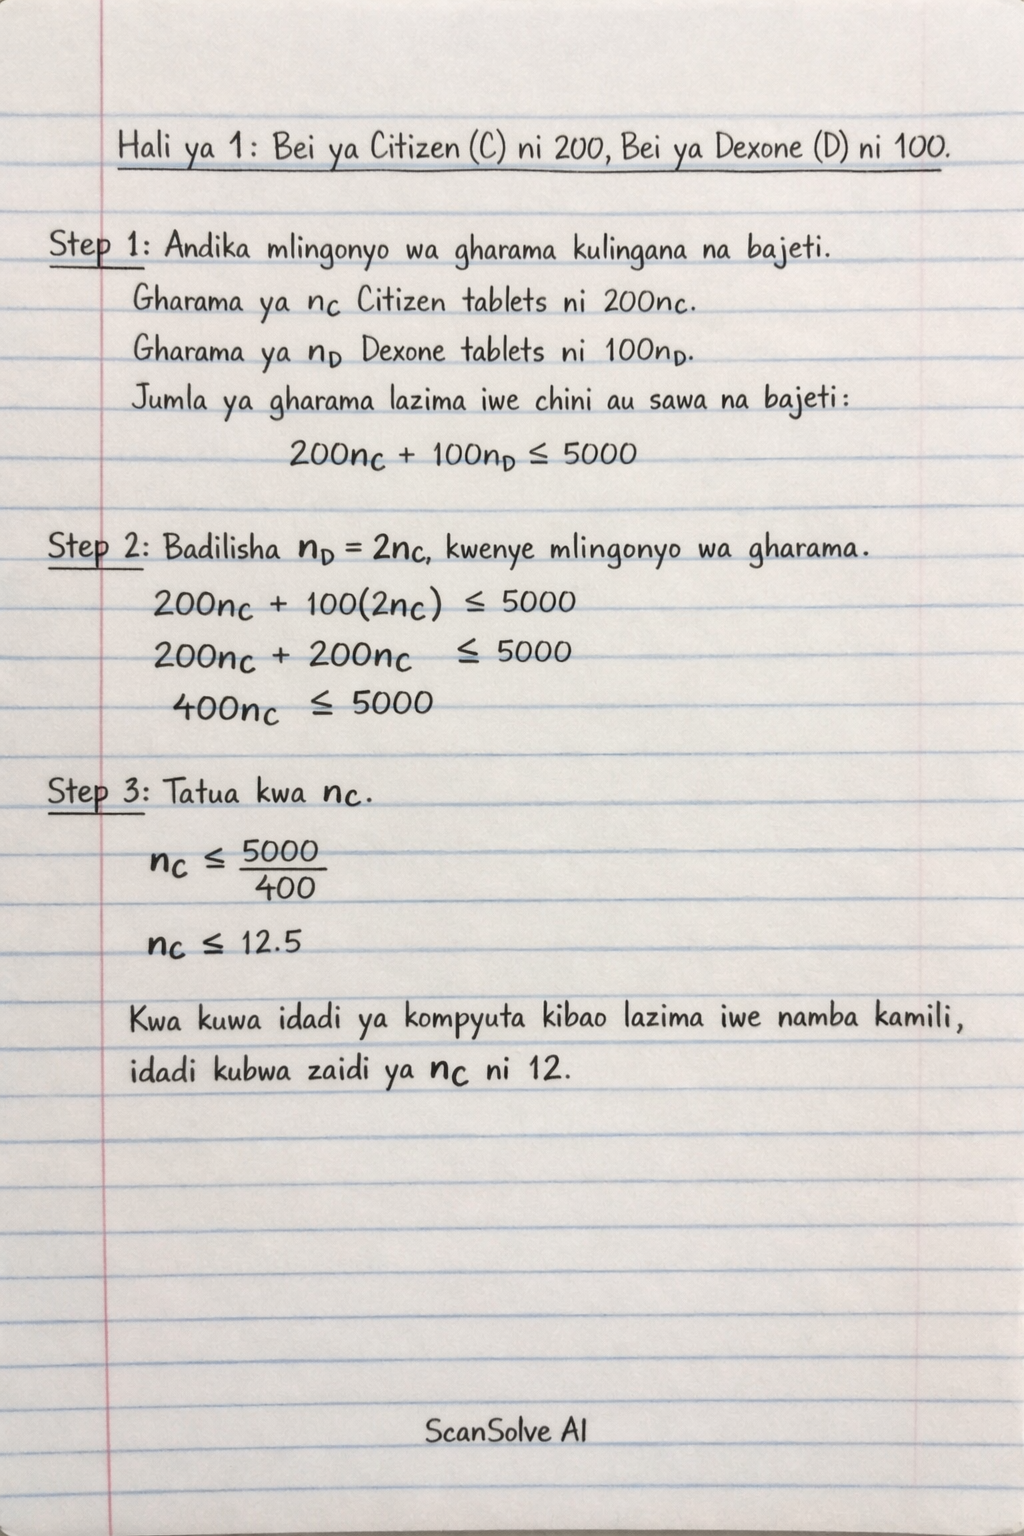 Hali ya 1: Bei ya Citizen (C) ni 200, Bei ya Dexone (D) ni 100.
Step 1: Andika mlingonyo wa gharama kulingana na bajeti.
Gharama ya nc Citizen tablets ni 200nc.
Gharama ya nD Dexone tablets ni 100nD.
Jumla ya gharama lazima iwe chini au sawa na bajeti:
200nc + 100nD ≤ 5000
Step 2: Badilisha nD = 2nc, kwenye mlingonyo wa gharama.
200nc + 100(2nc) ≤ 5000
200nc + 200nc ≤ 5000
400nc ≤ 5000
Step 3: Tatua kwa nc.
nc ≤ 5000/400
nc ≤ 12.5
Kwa kuwa idadi ya kompyuta kibao lazima iwe namba kamili,
idadi kubwa zaidi ya nc ni 12.
ScanSolve AI